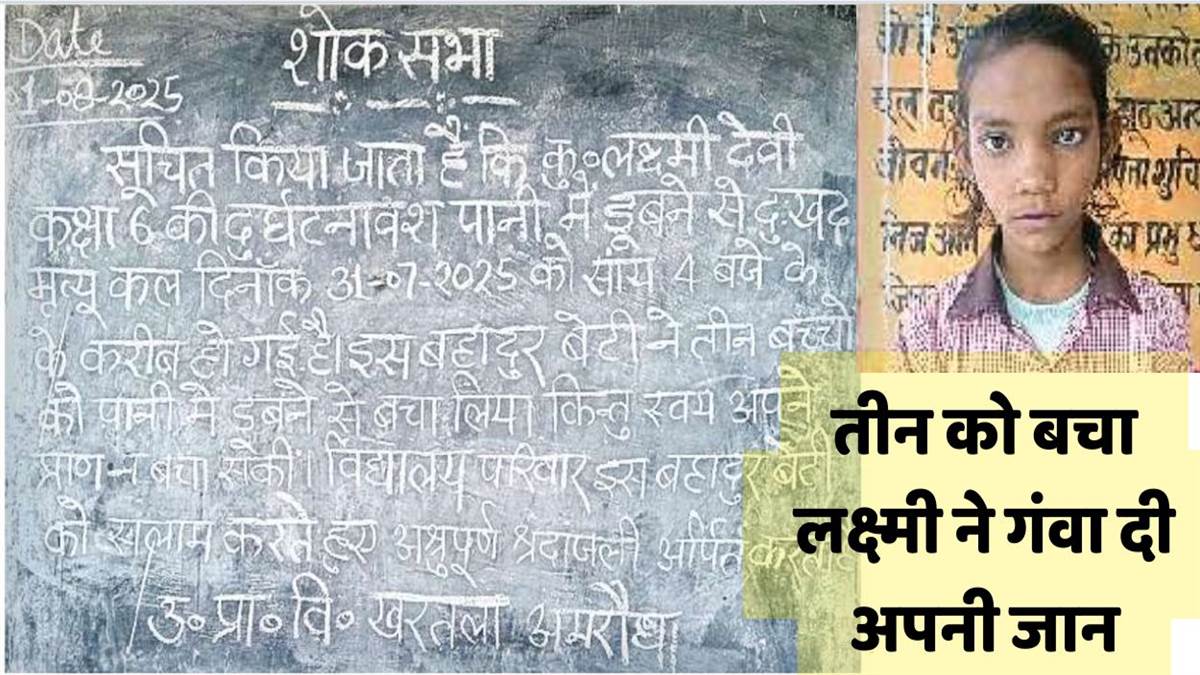 Date
1-08-2025
शोक सभा
सूचित किया जाता है कि कु॰लक्ष्मी देवी
कक्षा 6 की दुर्घटनावश पानी में डूबने से दुःखद
मृत्यू कल दिनाँक 31-07-2025 को सांय 4 बजे के
के करीब हो गई है। इस बहादुर बेटी ने तीन बच्चो
को पानी में डूबने से बचा लिया किन्तु स्वयं अपने
प्राण न बचा सकी। विद्यालय परिवार इस बहादुर बेटी
को सलाम करते हुए अश्रुपूर्ण श्रदाजली अर्पित करता
उ॰ प्रा॰ वि॰ खरतला अमरौधा
के उनको
चूल
जीवन
निज
का प्रभु
तीन को बचा
लक्ष्मी ने गंवा दी
अपनी जान